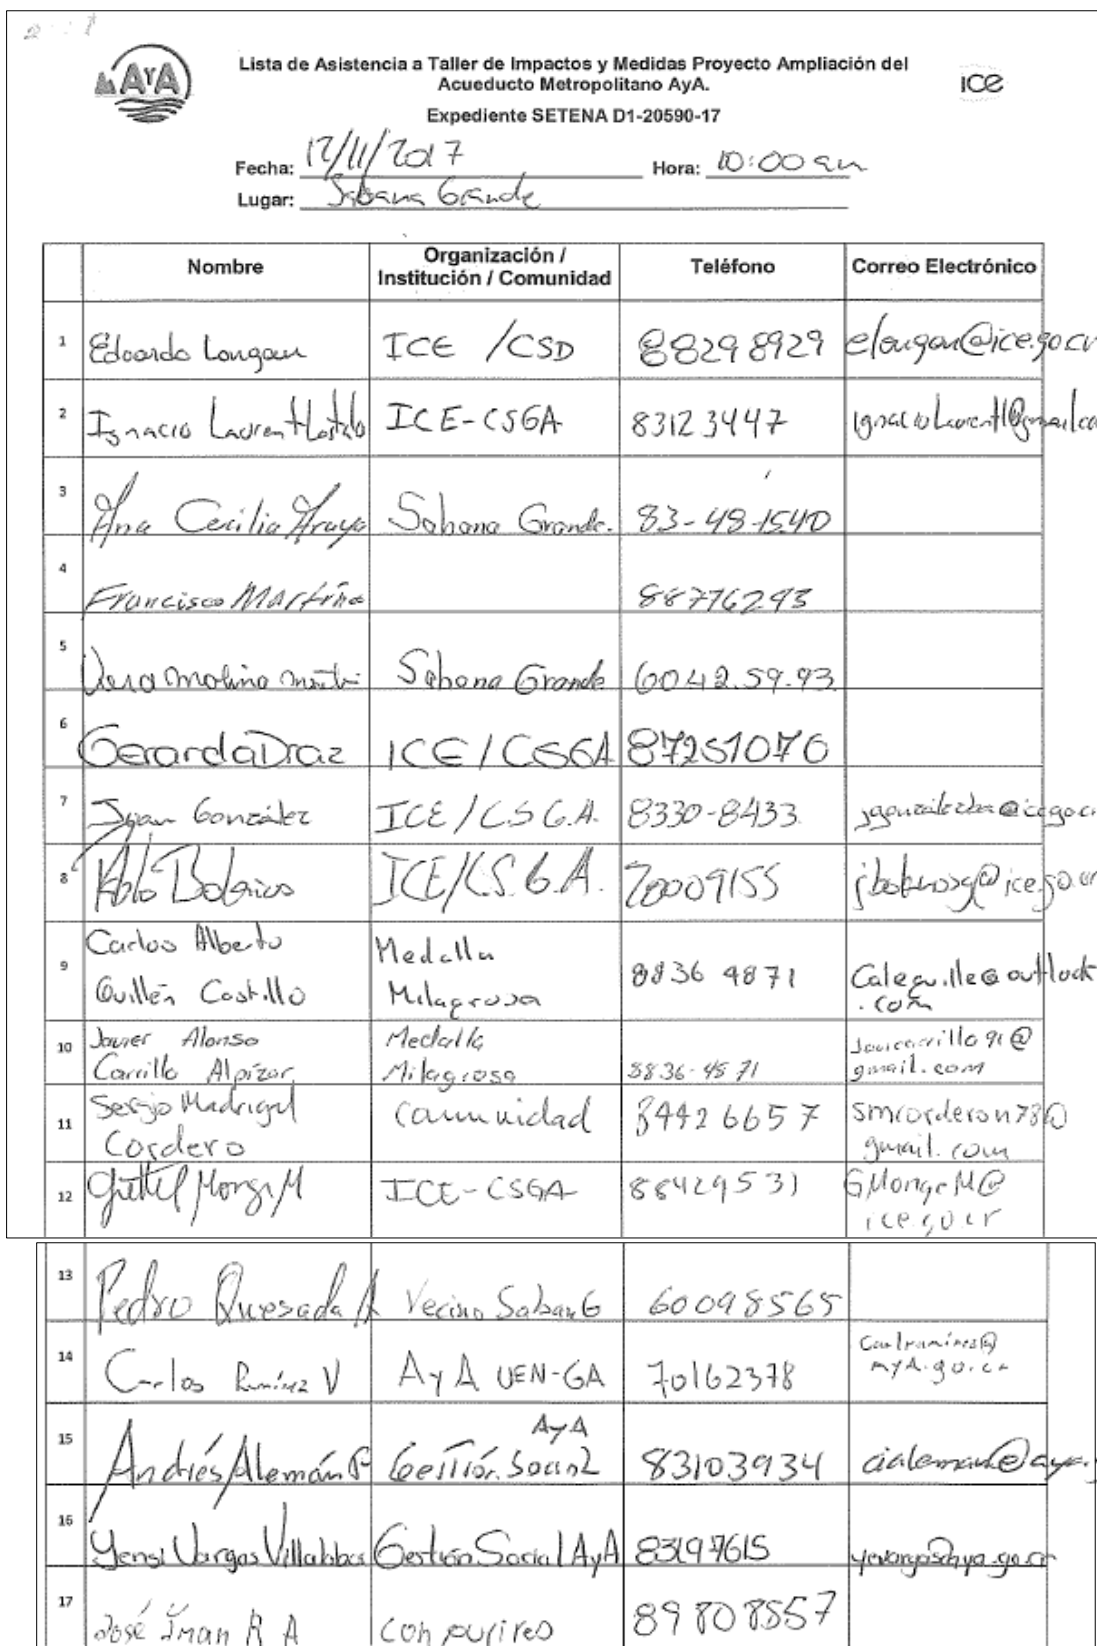 AYA
Lista de Asistencia a Taller de Impactos y Medidas Proyecto Ampliación del
Acueducto Metropolitano AyA.
ice
Expediente SETENA D1-20590-17
Fecha: 12/11/2017 Hora: 10:00 am
Lugar: Sabana Grande
Nombre Organización / Institución / Comunidad Teléfono Correo Electrónico
1 Edoardo Longan ICE /CSD 88298929 elongan@ice.go.cr
2 Ignacio Laurent ICE-CSGA 83123447
3 Ana Cecilia Araya Sabana Grande. 83-48-1540
4 Francisco Martínez 88776293
5 Vera Molina Sabana Grande 6042.59.93
6 Gerardo Díaz ICE/CSGA 87251076
7 González ICE/CSG.A. 8330-8433
8 Pablo Bolaños ICE/CS.G.A. 70009155
9 Carlos Alberto Medalla
Guillén Castillo Milagrosa 8836 4871
10 Javier Alonso Medalla
Carrillo Alpízar Milagrosa 8836-4571 gmail.com
11 Sergio Madrigal comunidad 84426657 smcorderon78@
Cordero gmail.com
12 Grettel Monge M ICE-CSGA 88429531 GMongeM@
ice.go.cr
13 Pedro Quesada A Vecino Saban G 60098565
14 Carlos Ramírez V AyA UEN-GA 70162378
aya.go.cr
15 Andrés Alemán Gestión Social AyA 83103934
16 Yensi Vargas Villalobos Gestión Social AyA 83197615 yevargas@aya.go.cr
17 José R A 89808557